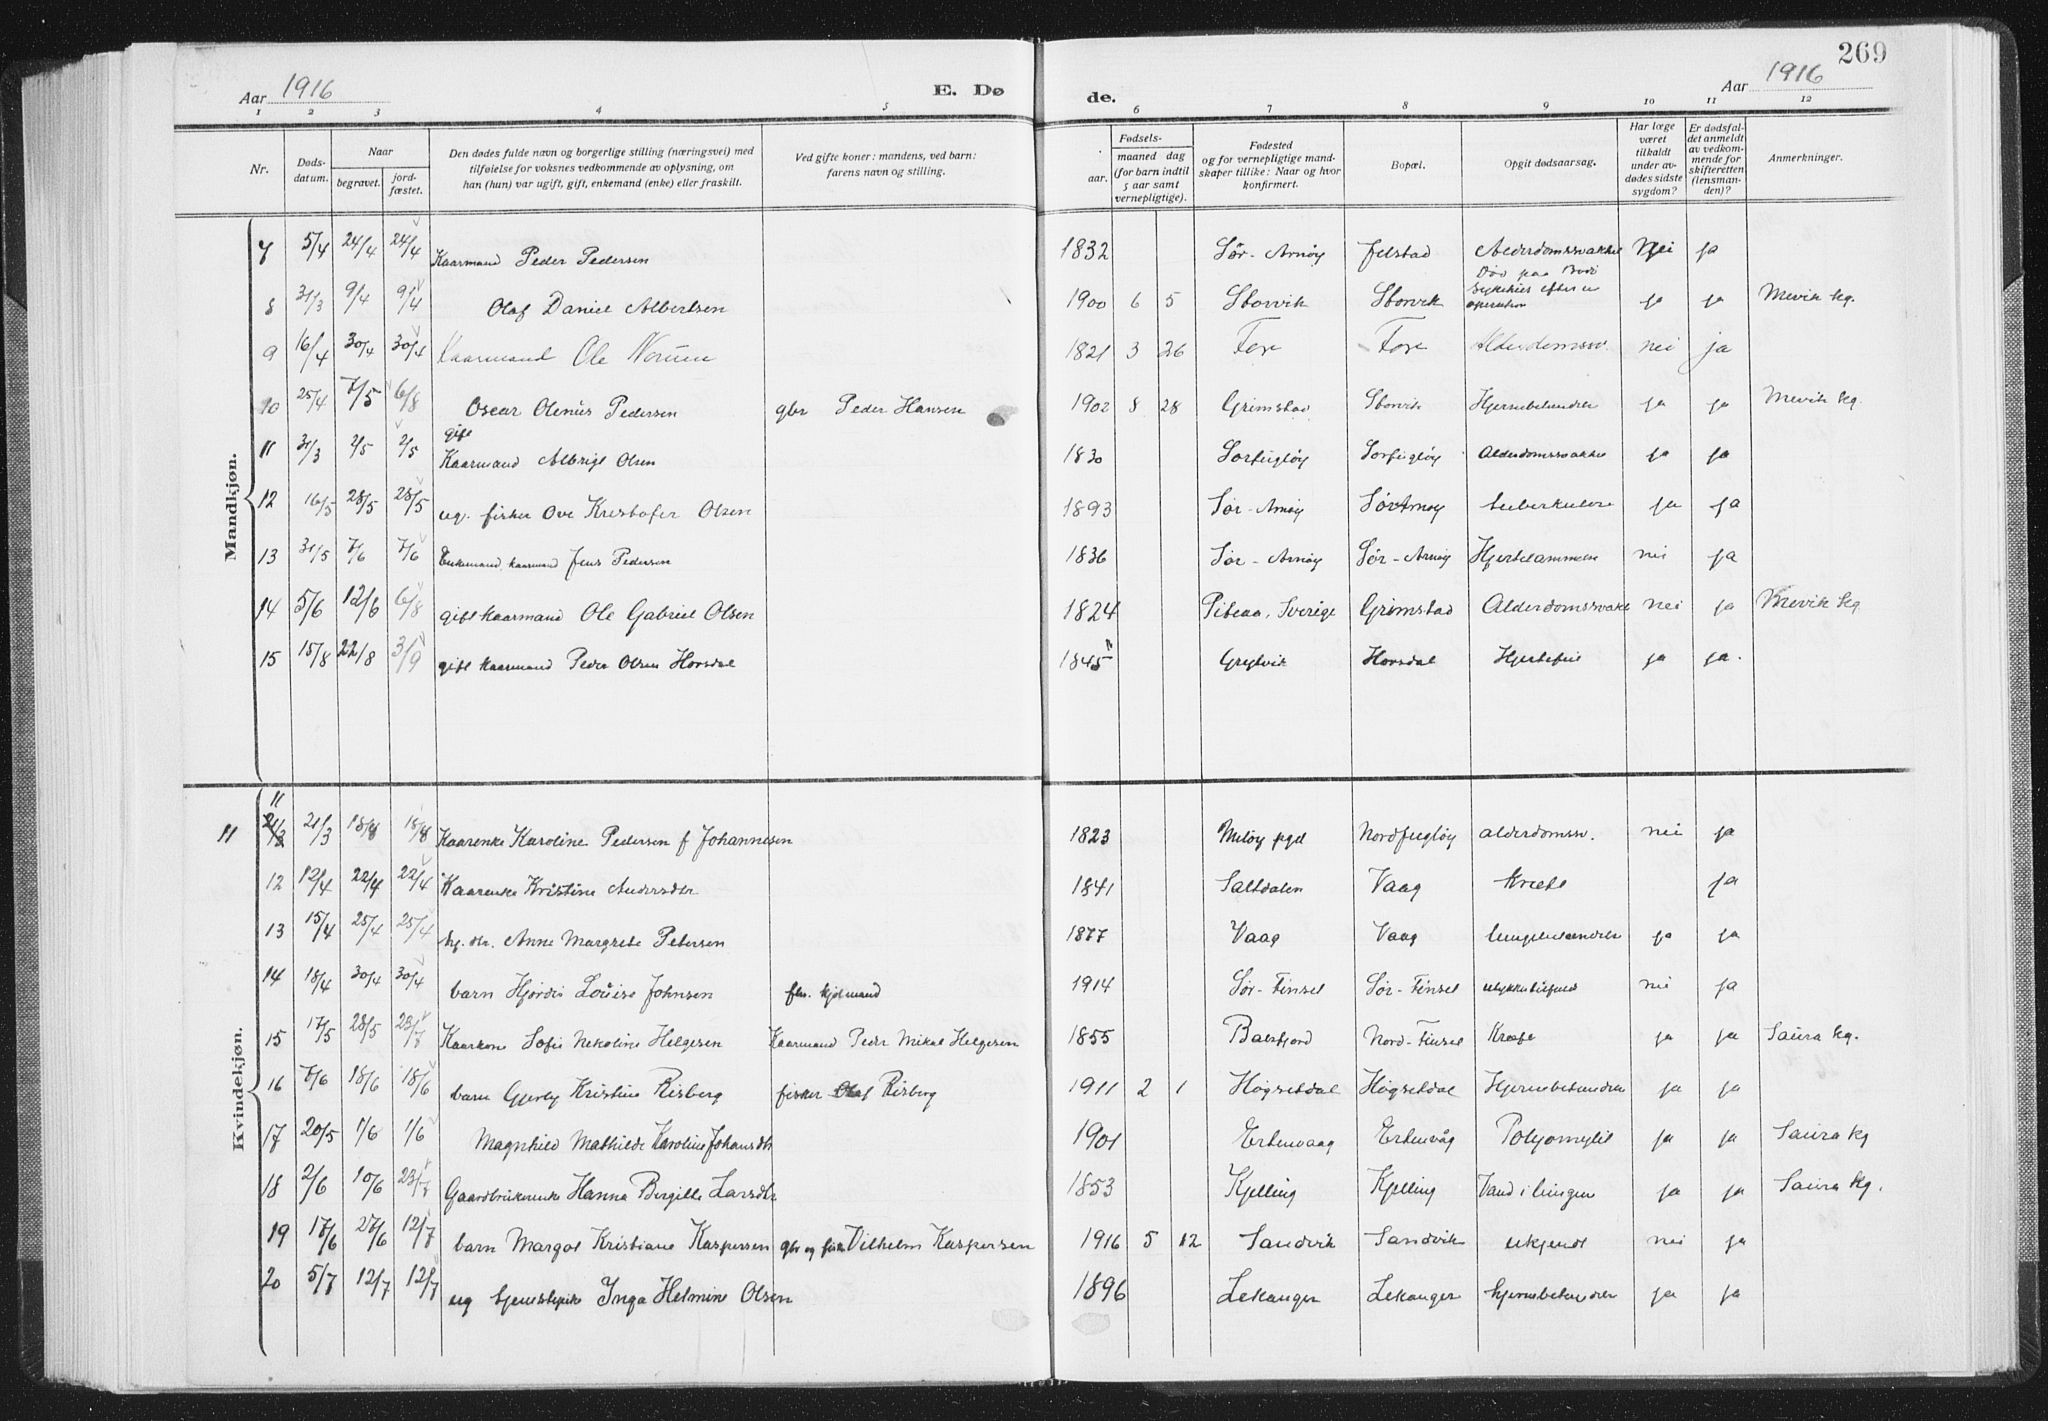 269
Aar 1916 E. Dø de. Aar 1916
1 2 3 4 5 6 7 8 9 10 11 12
Nr. Døds-datum. Naar begravet. jord-fæstet. Den dødes fulde navn og borgerlige stilling (næringsvei) med tilføielse for voksnes vedkommende av oplysning, om han (hun) var ugift, gift, enkemand (enke) eller fraskilt. Ved gifte koner: mandens, ved barn: farens navn og stilling. Fødsels- aar. maaned dag (for barn indtil 5 aar samt vernepligtige). Fødested og for vernepligtige mand-skaper tillike: Naar og hvor konfirmert. Bopæl. Opgit dødsaarsag. Har læge været tilkaldt under av-dødes sidste sygdom? Er dødsfal-det anmeldt av vedkom-mende for skifteretten (lensman-den)? Anmerkninger.
Mandkjøn.
7 5/4 24/4 24/4 Kaarmand Peder Pedersen 1832 Sør-Arnøy Jelstad Alderdomssvakke Nei ja
8 31/3 9/4 9/4 Olaf Daniel Albertsen 1900 6 5 Storvik Storvik Død paa Bodø Sykehus efter en operation ja ja Mevik kg.
9 16/4 30/4 30/4 Kaarmand Ole Norum 1821 3 26 Fore Fore Alderdomssv. nei ja
10 25/4 7/5 6/8 Oscar Olenus Pedersen gbr Peder Hansen 1902 8 28 Grimstad Storvik Hjernebetændelse ja ja Mevik kg.
11 31/3 2/5 2/5 gift Kaarmand Albrigt Olsen 1830 Sørfugløy Sørfugløy Alderdomssvakke ja ja
12 16/5 28/5 28/5 ug. fisker Ove Kristofer Olsen 1893 Sør-Arnøy Sør Arnøy tuberkulose ja ja
13 31/5 7/6 7/6 Enkemand, kaarmand Jens Pedersen 1836 Sør-Arnøy Sør-Arnøy Hjertelammelse nei ja
14 5/6 12/6 6/8 gift kaarmand Ole Gabriel Olsen 1824 Piteaa, Sverige Grimstad Alderdomssvake nei ja Mevik kg
15 15/8 22/8 3/9 gift kaarmand Peder Olsen Horsdal 1845 Horsdal Hjertefeil ja ja.
Kvindekjøn.
11 11 21/3 21/3 18/8 18/8 Kaarenke Karoline Pedersen f Johannesen 1823 Meløy pgd Nordfugløy alderdomssv. nei ja
12 12/4 22/4 22/4 Kaarenke Kristine Andersdtr 1841 Saltdalen Vaag Kræft ja
13 15/4 25/4 25/4 Anne Margrete Petersen 1877 Vaag Vaag lungebetændelse ja ja
14 18/4 30/4 30/4 barn Hjørdis Louise Johnsen 1914 Sør-Finset Sør-Finset ulykkestilfælde nei ja
15 17/5 28/5 23/7 Kaarkone Sofie Nekoline Helgesen Kaarmand Peder Mikal Helgesen 1855 Balsfjord Nord-Finset Kræft ja ja Saura kg.
16 7/6 18/6 18/6 barn Gjerty Kristine Risberg fisker Olaf Risberg 1911 2 1 Høgsetdal Høgsetdal Hjernebetændelse ja ja
17 20/5 1/6 1/6 Magnhild Mathilde Karoline Johansdtr 1901 Ertenvaag Ertenvåg Polyomylit ja ja Saura kg
18 2/6 10/6 23/7 Gaardbrukerenke Hanna Bergitte Larsdtr 1853 Kjelling Kjelling Vand i lungen ja ja Saura kg.
19 17/6 27/6 12/7 barn Margot Kristiane Kaspersen gbr og fisker Vilhelm Kaspersen 1916 5 12 Sandvik Sandvik ukjendt nei ja
20 5/7 12/7 12/7 ug tjenestepike Inga Helmine Olsen 1896 Lekanger Lekanger hjernebetændelse ja ja